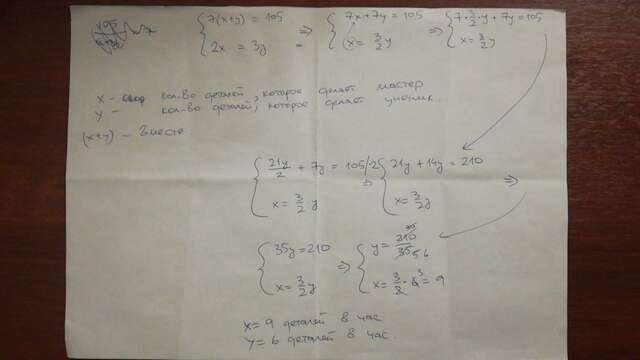 { 7(x+y) = 105 ⇒ { 7x + 7y = 105 ⇒ { 7·3/2·y + 7y = 105
{ 2x = 3y { x = 3/2 y { x = 3/2 y
x – кол-во деталей, которое делает мастер
y – кол-во деталей, которое делает ученик.
(x+y) – вместе
{ 21y/2 + 7y = 105 |·2 ⇒ { 21y + 14y = 210 ⇒
{ x = 3/2 y { x = 3/2 y
{ 35y = 210 ⇒ { y = 210/35 = 6
{ x = 3/2 y { x = 3/2 · 6 = 9
x = 9 деталей в час
y = 6 деталей в час.